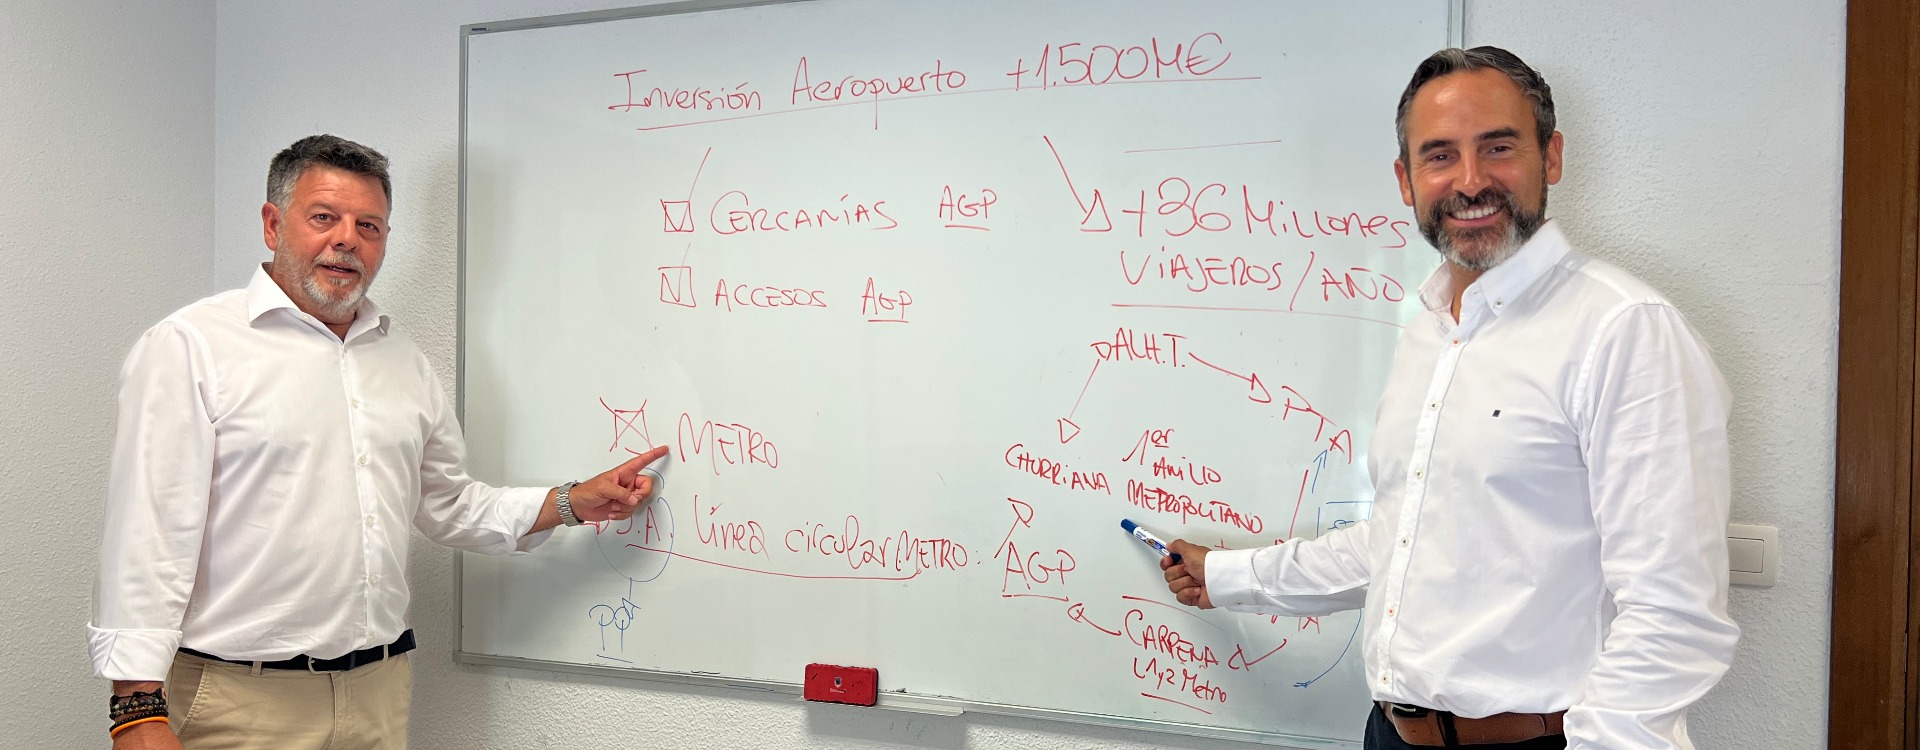 Inversión Aeropuerto +1.500M€
CERCANÍAS AGP
ACCESOS AGP
+36 Millones
VIAJEROS/AÑO
METRO
J.A. línea circular METRO:
ALH.T.
PTA
CHURRIANA
1er
ANILLO
METROPOLITANO
AGP
CARPENA
L1y2 Metro